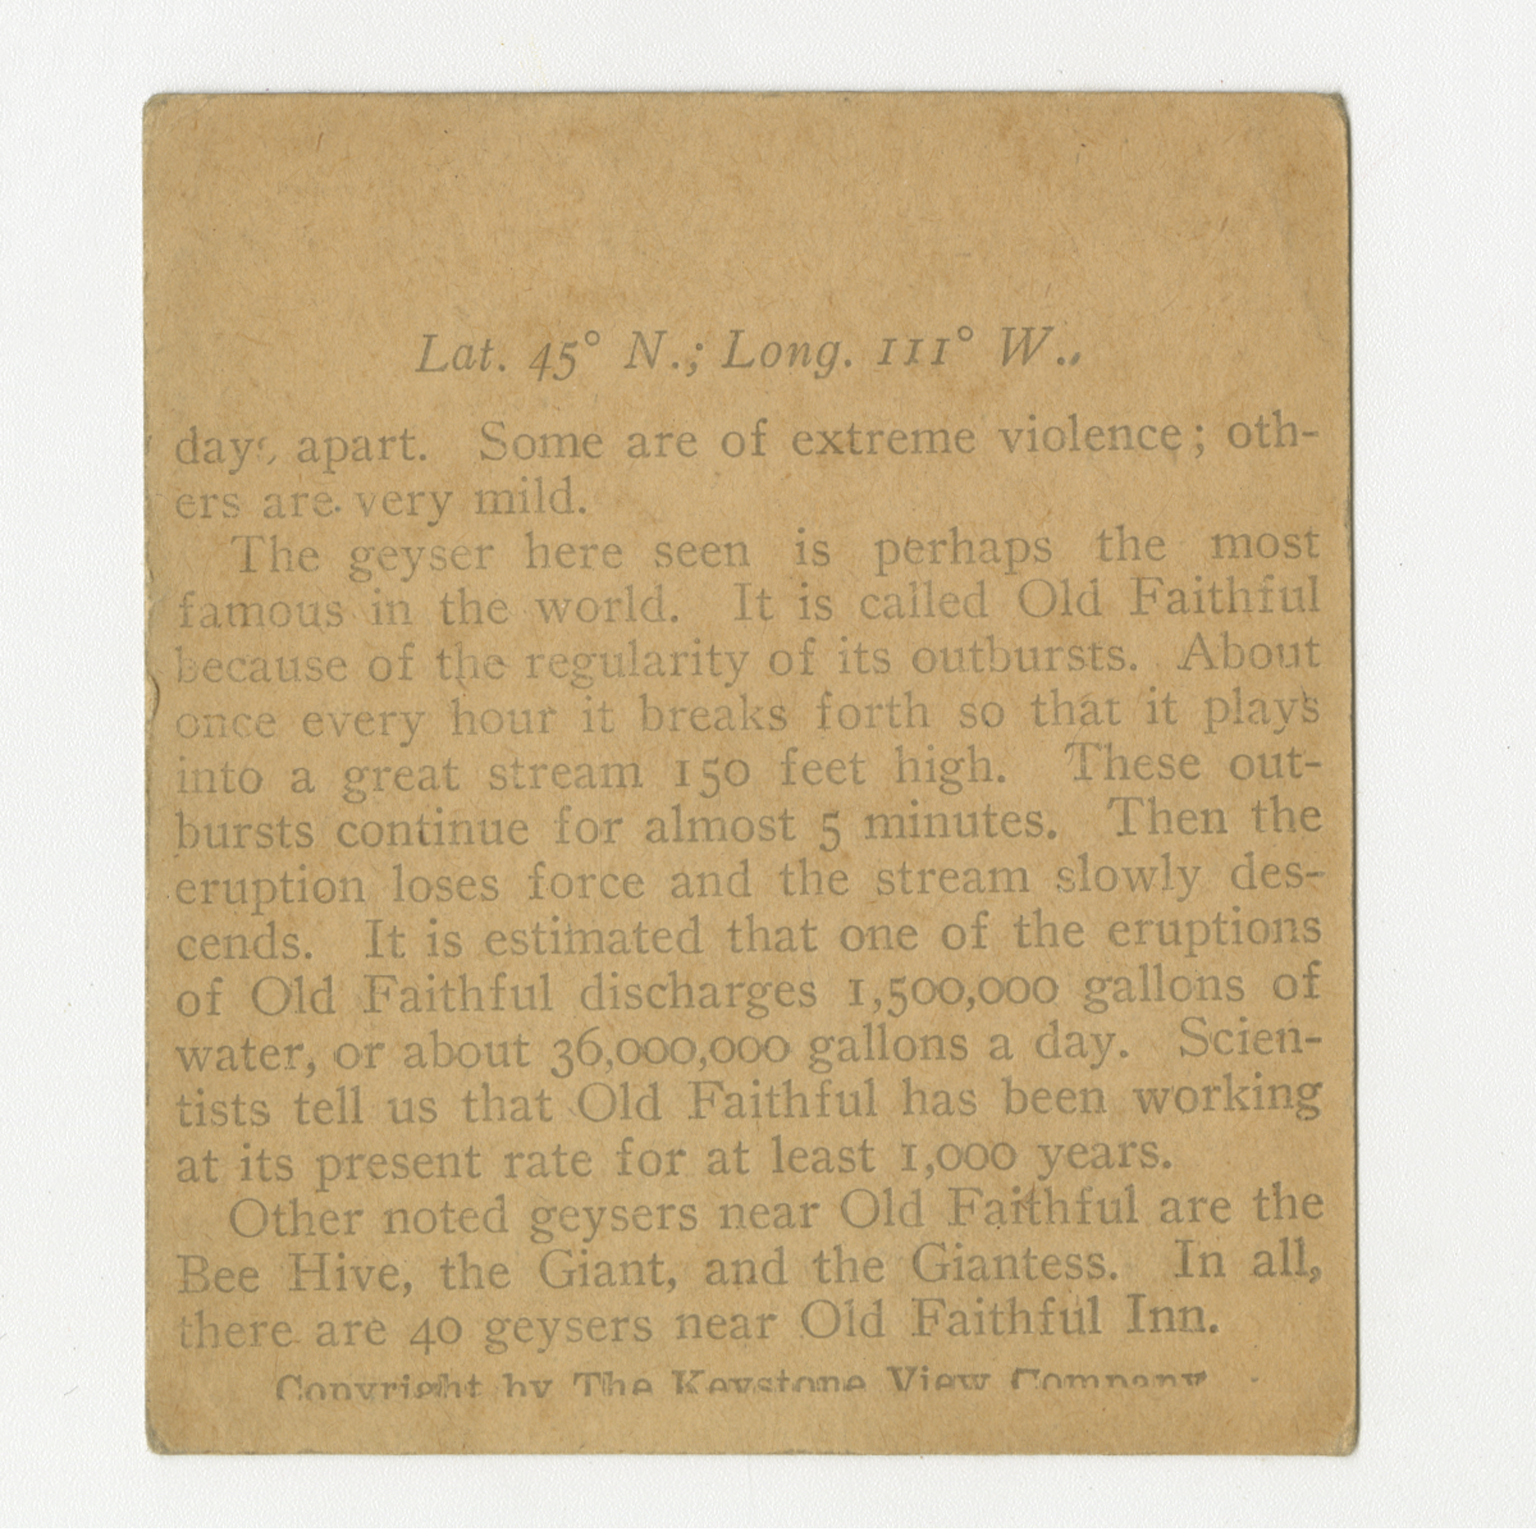 Lat. 45° N.; Long. 111° W..
days, apart. Some are of extreme violence; oth-
ers are very mild.
The geyser here seen is perhaps the most
famous in the world. It is called Old Faithful
because of the regularity of its outbursts. About
once every hour it breaks forth so that it plays
into a great stream 150 feet high. These out-
bursts continue for almost 5 minutes. Then the
eruption loses force and the stream slowly des-
cends. It is estimated that one of the eruptions
of Old Faithful discharges 1,500,000 gallons of
water, or about 36,000,000 gallons a day. Scien-
tists tell us that Old Faithful has been working
at its present rate for at least 1,000 years.
Other noted geysers near Old Faithful are the
Bee Hive, the Giant, and the Giantess. In all,
there are 40 geysers near Old Faithful Inn.
Copyright by The Keystone View Company